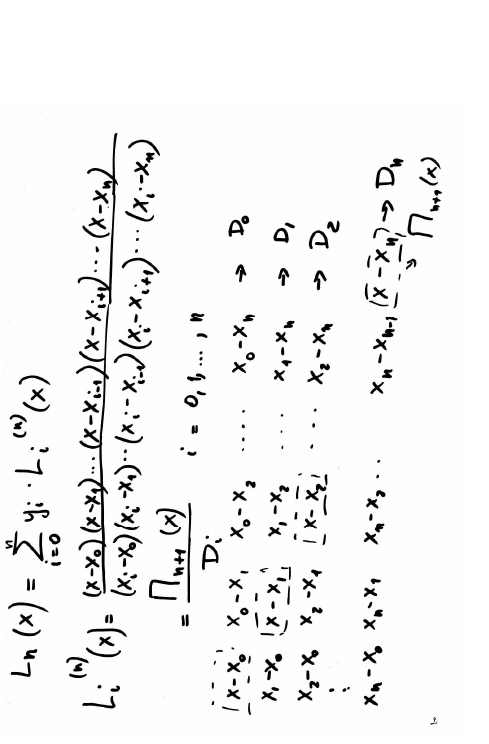 Lₙ(x) = Σ_{i=0}^{n} yᵢ · Lᵢ⁽ⁿ⁾(x)
Lᵢ⁽ⁿ⁾(x) = (x-x₀)(x-x₁)...(x-xᵢ₋₁)(x-xᵢ₊₁)...(x-xₙ)
(xᵢ-x₀)(xᵢ-x₁)...(xᵢ-xᵢ₋₁)(xᵢ-xᵢ₊₁)...(xᵢ-xₙ)
= ∏ₙ₊₁(x) / Dᵢ i = 0, 1, ..., n
x-x₀ x₀-x₁ x₀-x₂ ..... x₀-xₙ → D₀
x₁-x₀ x-x₁ x₁-x₂ .... x₁-xₙ → D₁
x₂-x₀ x₂-x₁ x-x₂ ... x₂-xₙ → D₂
⋮
xₙ-x₀ xₙ-x₁ xₙ-x₂ ... xₙ-xₙ₋₁ (x-xₙ) → Dₙ
→ ∏ₙ₊₁(x)